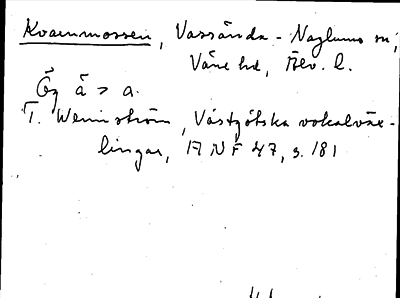 Kvarnmossen, Vassända-Naglums sn,
Väne hd, Älv. l.
Ög å > a.
T. Wennström, Västgötska vokalväx-
lingar, ANF 47, s. 181